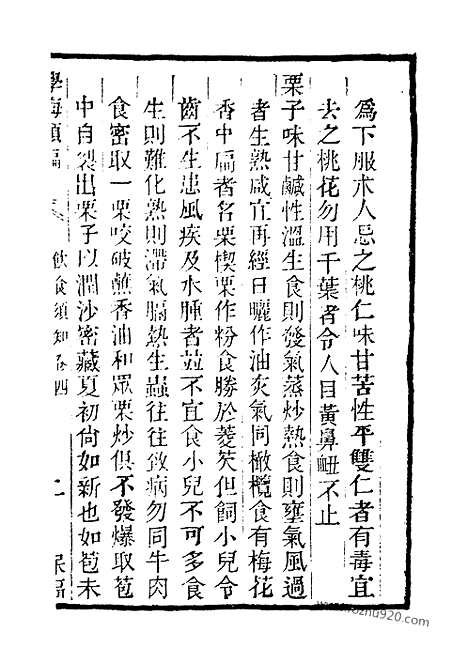 爲下服朮人忌之桃仁味甘苦性平雙仁者有毒宜
去之桃花勿用千葉者令人目黃鼻衄不止
栗子味甘鹹性溫生食則發氣蒸炒熱食則壅氣風過
者生熟咸宜再經日曬作油灰氣同橄欖食有梅花
香中扁者名栗楔栗作粉食勝於菱芡但飼小兒令
齒不生患風疾及水腫者並不宜食小兒不可多食
生則難化熟則滯氣膈熱生蟲往往致病勿同牛肉
食密取一栗咬破蘸香油和眾栗炒俱不發爆取苞
中自裂出栗子以潤沙密藏夏初尚如新也如苞未
學海類編
飲食須知卷四
二